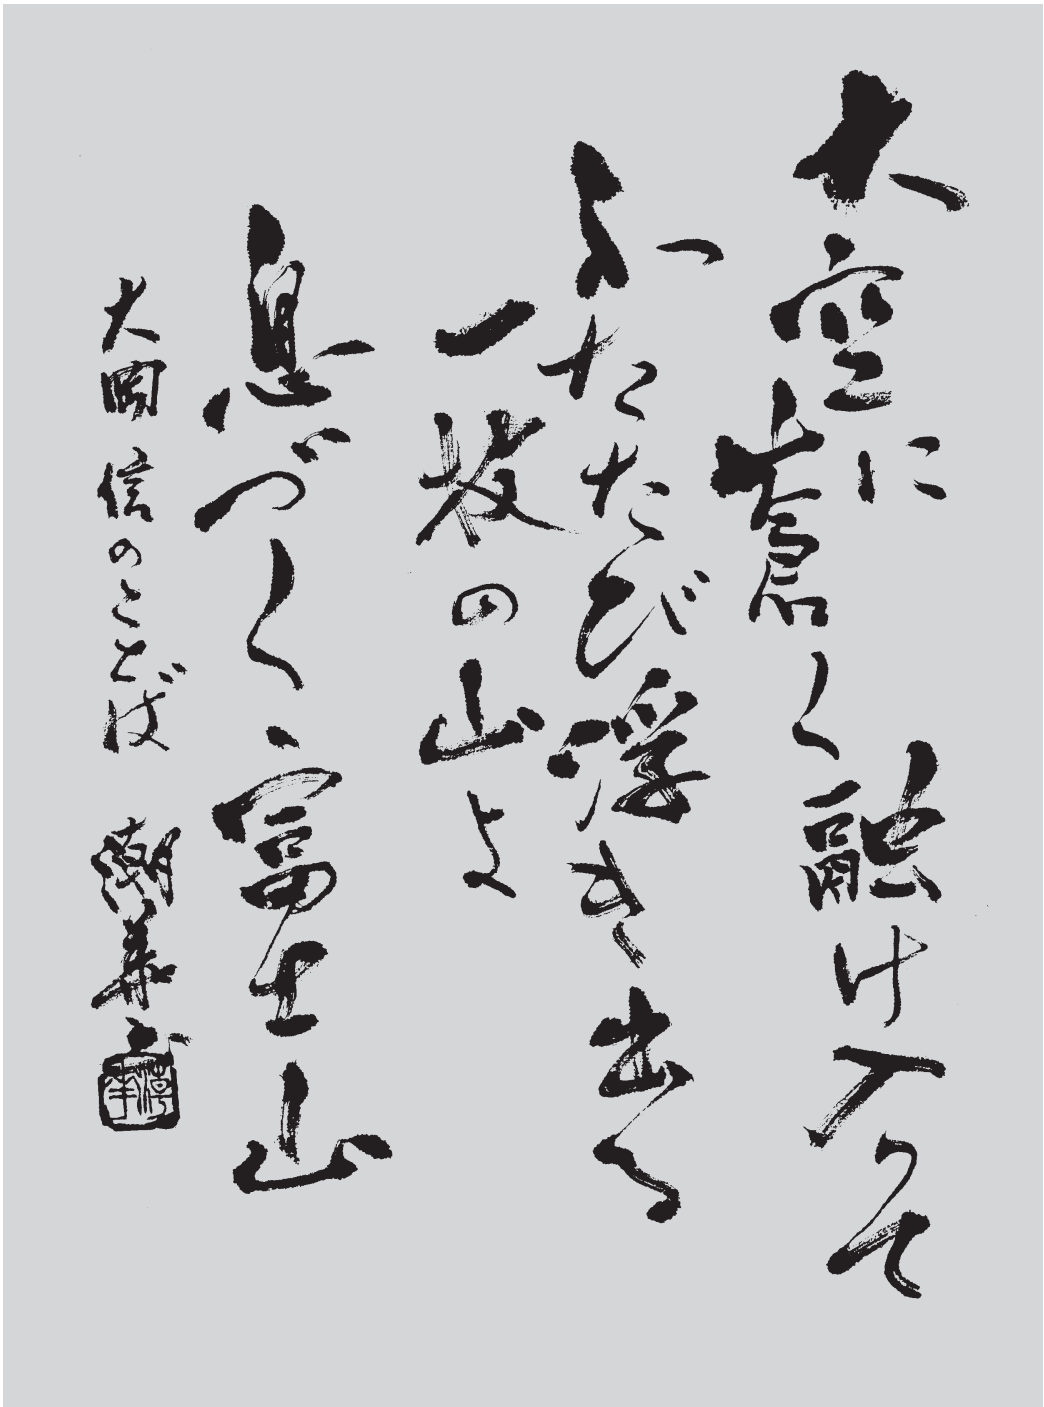 大空に蒼く融け入つて
ふたたび浮き出る
一枚の山よ
息づく富士山
大岡信のことば 潮華書